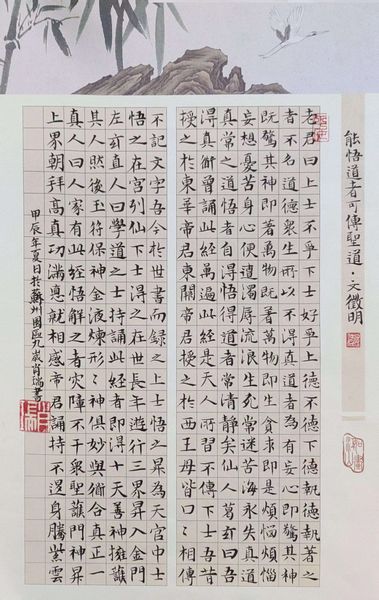 能悟道者可傳聖道·文徵明
老君曰上士不爭下士好爭上德不德下德執德執著之
者不名道德衆生所以不得真道者為有妄心即驚其神
既驚其神即著萬物既著萬物即生貪求即是煩惱煩惱
妄想憂苦身心便遭濁辱流浪生死常迷苦海永失真道
真常之道悟者自得悟得道者常清靜矣仙人葛玄曰吾
得真衜曾誦此經萬過此經是天人所習不傳下士吾昔
授之於東華帝君東關帝君授之於西王母皆口〻相傳
不記文字吾今於世書而録之上士悟之昇為天宮中士
悟之在宮列仙下士得之在世長年遊行三界昇入金門
左玄直人曰學道之士持誦此經者即得十天善神擁護
其人然後玉符保神金液煉形〻神俱妙與衜合真正一
真人曰人家有此經悟解之者災障不干衆聖護門神昇
上界朝拜高真功滿德就相感帝君誦持不退身騰紫雲
甲辰年夏日於蘇州園區九歲肖瑞書